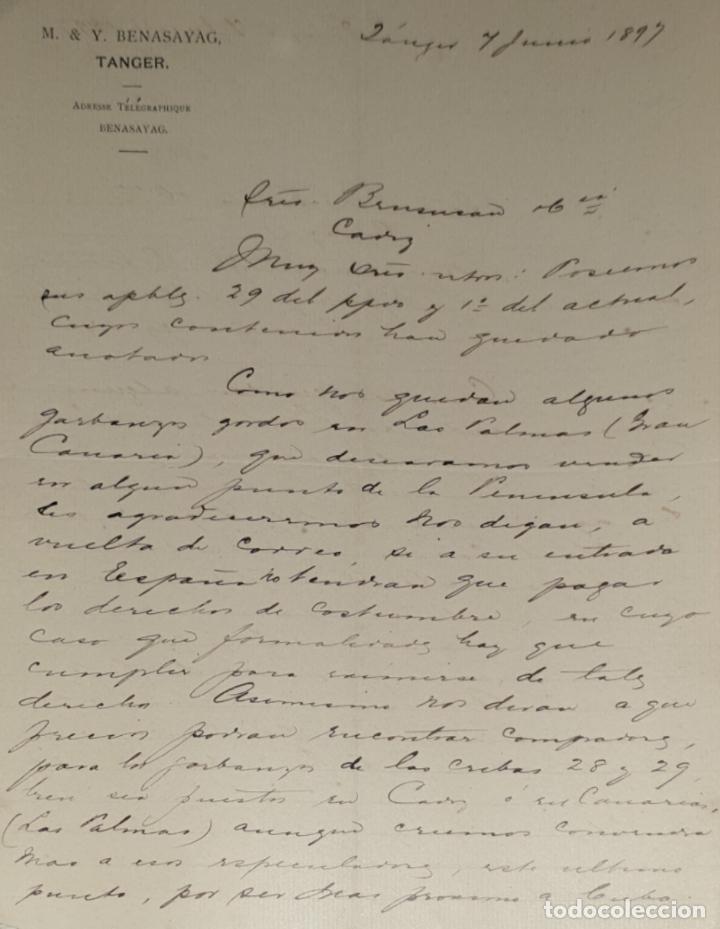 M. & Y. BENASAYAG,
TANGER.
ADRESSE TÉLÉGRAPHIQUE
BENASAYAG.
Tánger 7 Junio 1897
Sres. Bensusan &
Cadiz
Muy Sres. ntros: Poseemos
sus 29 del ppdo y 1º del actual,
cuyos contenidos han quedado
anotados
Como nos quedan algunos
garbanzos gordos en Las Palmas (Gran
Canaria), que desearamos vender
en algun punto de la Peninsula,
les agradeceremos nos digan, a
vuelta de correo, si a su entrada
en España no tendran que pagar
los derechos de costumbre, en cuyo
caso que formalidades hay que
cumplir para eximirse de tales
derechos. Asimismo nos diran a que
precios podran encontrar compradores,
para los garbanzos de las cribas 28 y 29,
bien sea puestos en Cadiz ó en Canarias,
(Las Palmas) aunque creemos convendra
mas a esos especuladores, este ultimo
punto, por ser mas proximo a Cuba.
todocoleccion